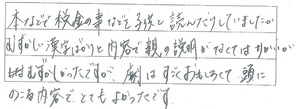 本などで税金の事などを子供と読んだりしていましたが
むずかしい漢字ばかりと内容で親の説明がなくてはちがいが
むずかしかったですが 劇はすごくおもしろくて頭に
のこる内容でとてもよかったです。